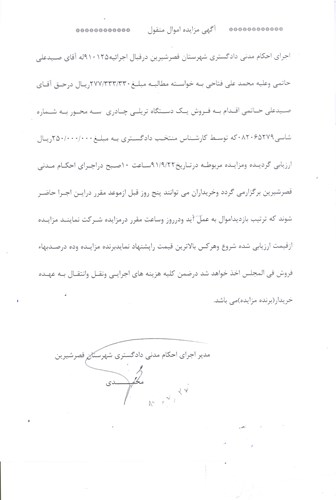 ************** آگهی مزایده اموال منقول **************
اجرای احکام مدنی دادگستری شهرستان قصرشیرین درقبال اجرائیه۹۱۰۱۲۵له آقای صیدعلی
حاتمی وعلیه محمد علی فتاحی به خواسته مطالبه مبلغ۲۷۷/۳۳۳/۳۳۰ریال درحق آقای
صیدعلی حاتمی اقدام به فروش یک دستگاه تریلی چادری سه محور به شماره
شاسی۰۸۲۰۶۵۲۷۹که توسط کارشناس منتخب دادگستری به مبلغ۲۵۰/۰۰۰/۰۰۰ریال
ارزیابی گردیده ومزایده مربوطه درتاریخ۹۱/۹/۲۲ساعت ۱۰صبح دراجرای احکام مدنی
قصرشیرین برگزارمی گردد وخریداران می توانند پنج روز قبل ازموعد مقرر دراین اجرا حاضر
شوند که ترتیب بازدیداموال به عمل آید ودرروز وساعت مقرر درمزایده شرکت نمایند مزایده
ازقیمت ارزیابی شده شروع وهرکس بالاترین قیمت راپیشنهاد نمایدبرنده مزایده وده درصدبهاء
فروش فی المجلس اخذ خواهد شد درضمن کلیه هزینه های اجرایی ونقل وانتقال به عهده
خریدار(برنده مزایده)می باشد.
مدیر اجرای احکام مدنی دادگستری شهرستان قصرشیرین